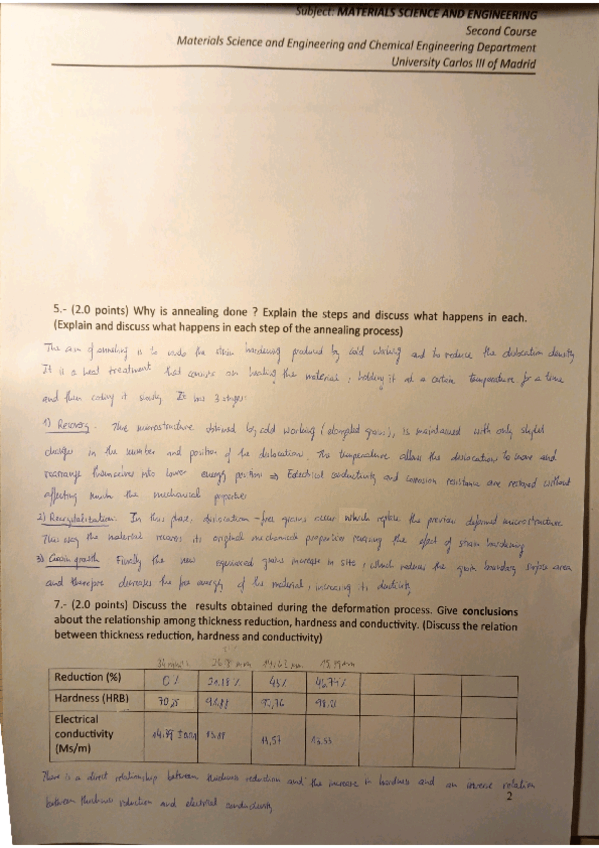 Subject: MATERIALS SCIENCE AND ENGINEERING
Second Course
Materials Science and Engineering and Chemical Engineering Department
University Carlos III of Madrid
5.- (2.0 points) Why is annealing done ? Explain the steps and discuss what happens in each.
(Explain and discuss what happens in each step of the annealing process)
The aim of annealing is to undo the strain hardening produced by cold working and to reduce the dislocation density
It is a heat treatment that consists on heating the material, holding it at a certain temperature for a time
and then cooling it slowly. It has 3 stages:
1) Recovery. The microstructure obtained by cold working (elongated grains), is maintained with only slight
changes in the number and position of the dislocation. The temperature allows the dislocation to move and
rearrange themselves into lower energy position ⇒ Electrical conductivity and corrosion resistance are restored without
affecting much the mechanical properties
2) Recrystallization. In this phase, dislocation-free grains occur which replace the previous deformed microstructure
This way the material recovers its original mechanical properties removing the effect of strain hardening
3) Grain growth Finally the new equiaxed grains increase in size, which reduces the grain boundary surface area
and therefore decreases the free energy of the material, increasing its ductility
7.- (2.0 points) Discuss the results obtained during the deformation process. Give conclusions
about the relationship among thickness reduction, hardness and conductivity. (Discuss the relation
between thickness reduction, hardness and conductivity)
Reduction (%) 0% 45%
Hardness (HRB)
Electrical
conductivity
(Ms/m)
There is a direct relationship between thickness reduction and the increase in hardness and an inverse relation
between thickness reduction and electrical conductivity
2